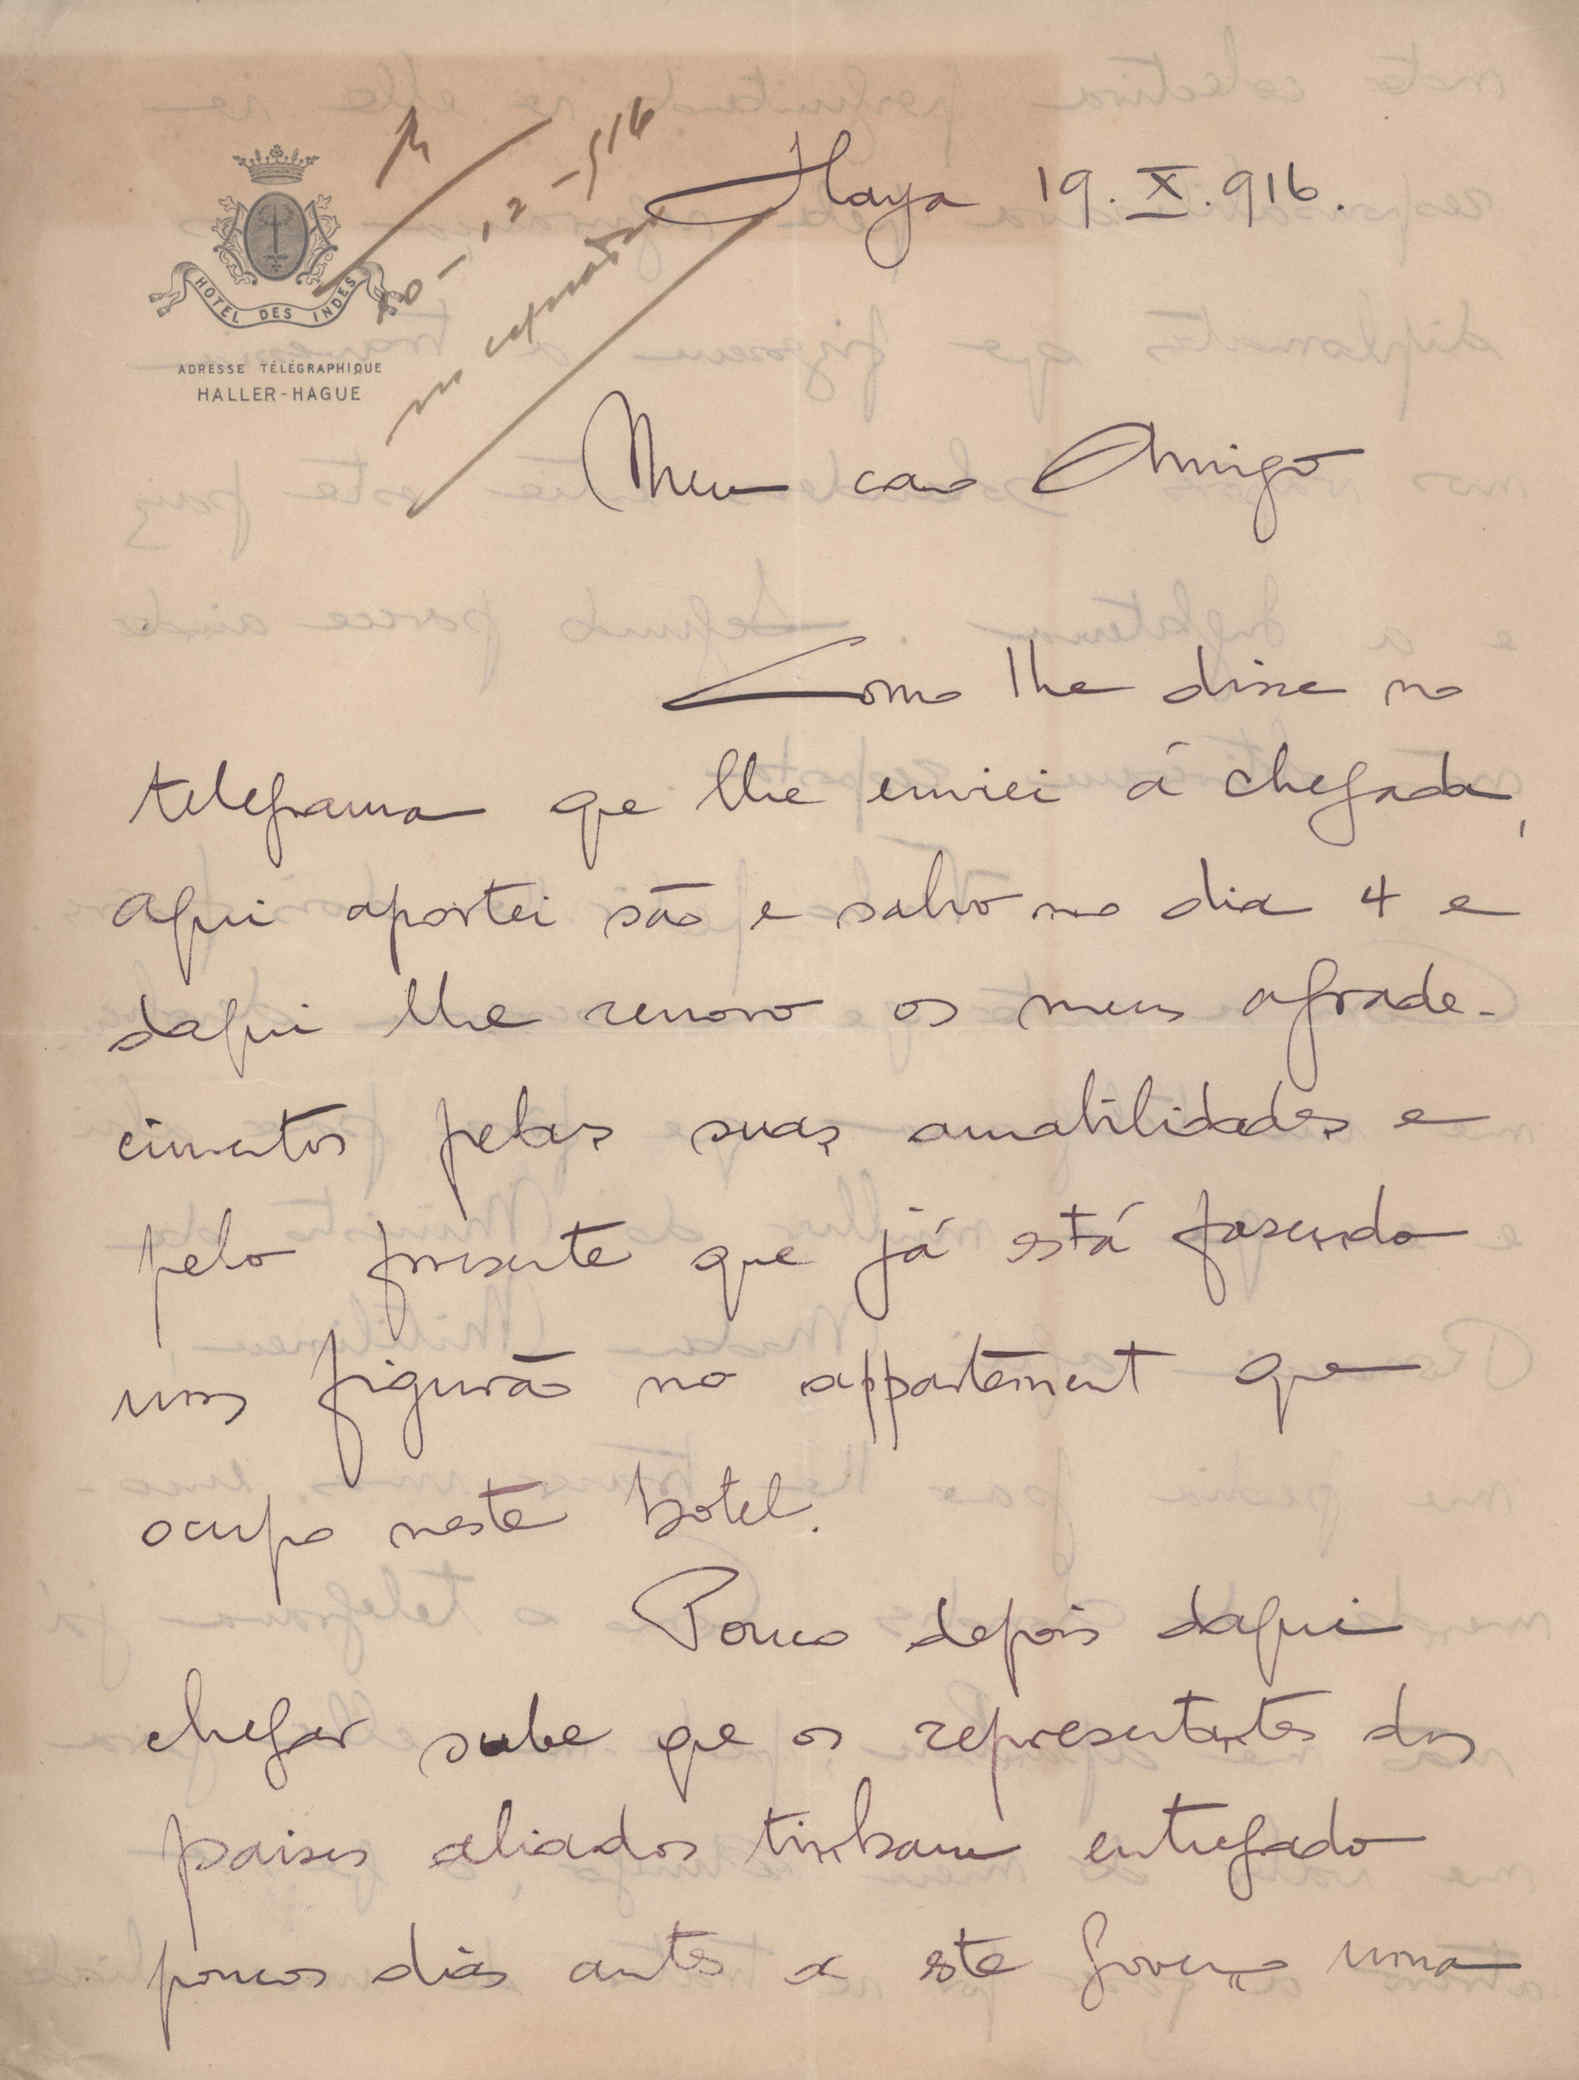 HOTEL DES INDES
ADRESSE TÉLÉGRAPHIQUE
HALLER-HAGUE
R
10-12-916
Haya 19.X.916.
Meu caro Amigo
Como lhe disse no
telegrama que lhe enviei á chegada,
aqui aportei são e salvo no dia 4 e
daqui lhe renovo os meus agrade-
cimentos pelas suas amabilidades e
pelo presente que já está fasendo
um figurão no appartement que
ocupo neste hotel.
Pouco depois daqui
chegar sube que os representantes dos
paises aliados tinham entregado
poucos dias antes a este governo uma